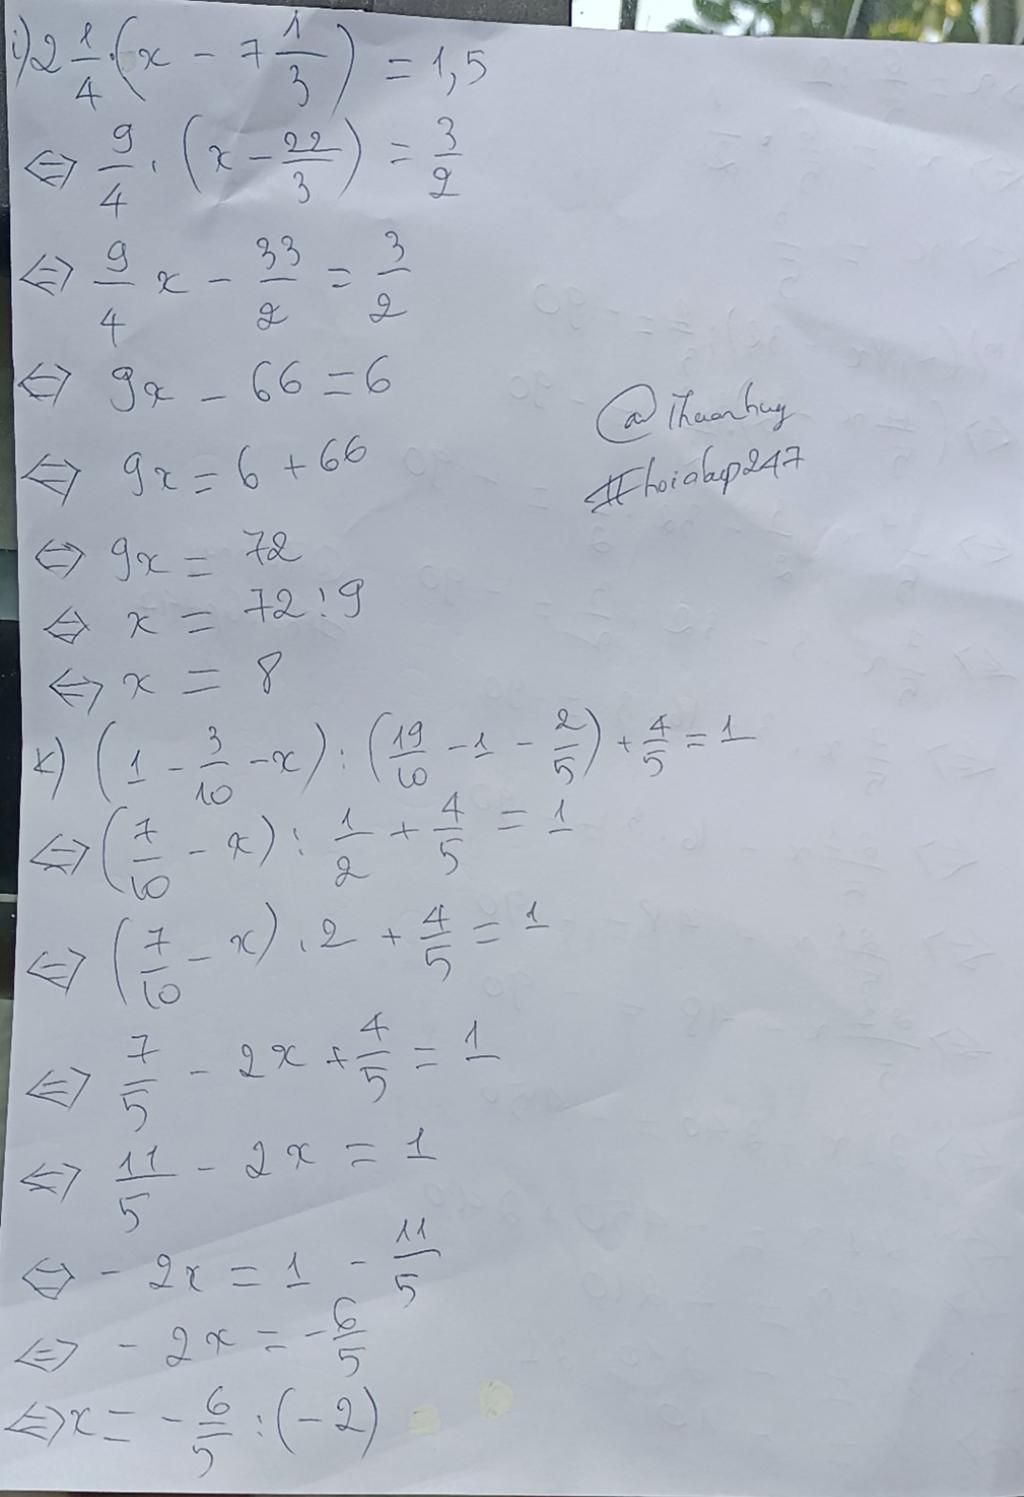 i) 2 1/4 . (x - 7 1/3) = 1,5
⇔ 9/4 . (x - 22/3) = 3/2
⇔ 9/4 x - 33/2 = 3/2
⇔ 9x - 66 = 6
⇔ 9x = 6 + 66
⇔ 9x = 72
⇔ x = 72 : 9
⇔ x = 8
@Thuanhuy
#hoidap247
k) (1 - 3/10 - x) : (19/10 - 1 - 2/5) + 4/5 = 1
⇔ (7/10 - x) : 1/2 + 4/5 = 1
⇔ (7/10 - x) . 2 + 4/5 = 1
⇔ 7/5 - 2x + 4/5 = 1
⇔ 11/5 - 2x = 1
⇔ - 2x = 1 - 11/5
⇔ - 2x = - 6/5
⇔ x = - 6/5 : (-2)